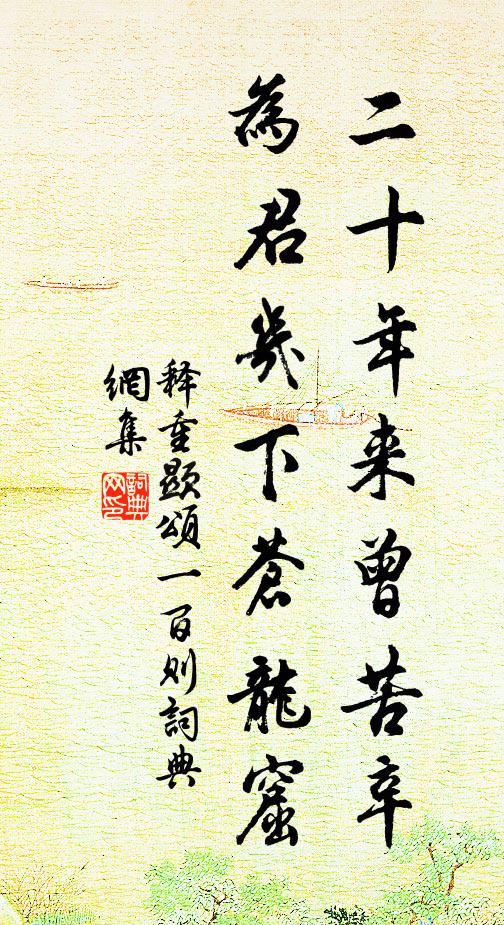 二十年来曾苦辛
為君幾下蒼龍窟
释重顯頌一百则詞典
網集
詞典
网印